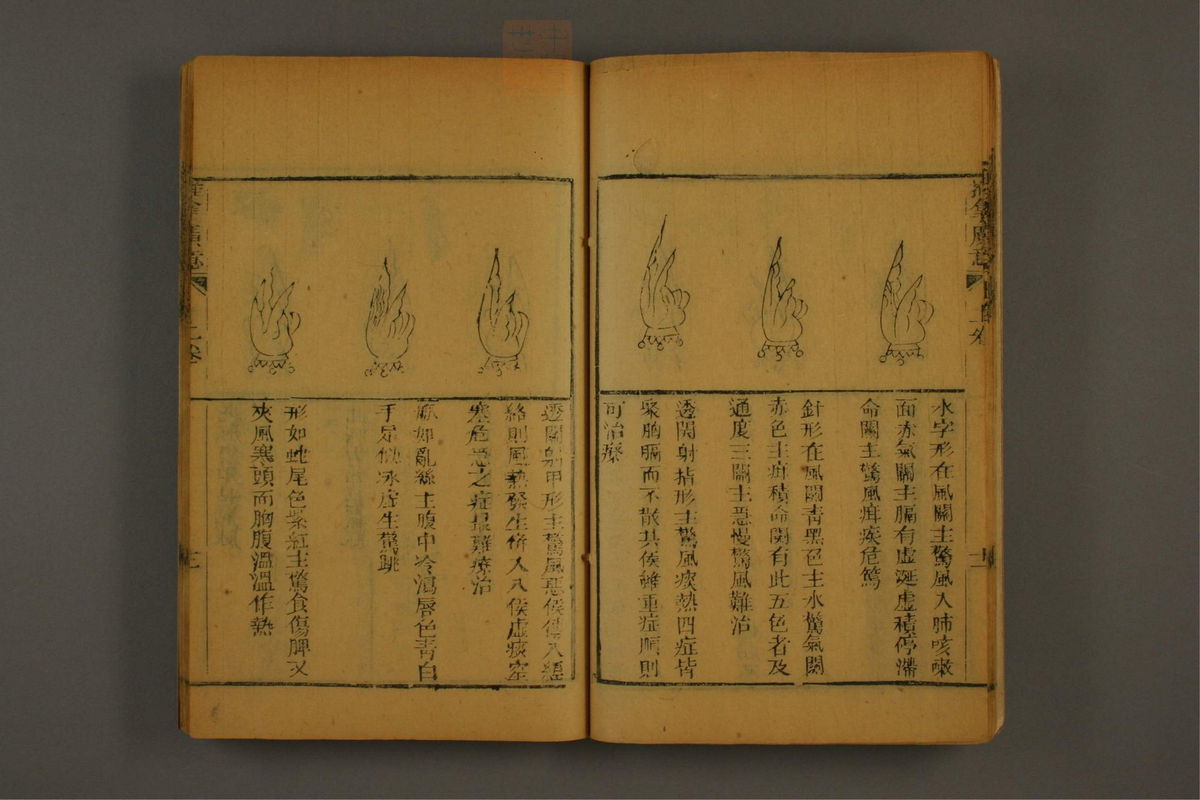 水字形在風關主驚風入肺咳嗽
面赤氣關主膈有虛涎虛積停滯
命關主驚風疳疾危篤
針形在風關青黑色主水驚氣關
赤色主疳積命關有此五色者及
通度三關主惡慢驚風難治
透関射指形主驚風痰熱四症皆
聚胸膈而不散其侯雖重症順則
可治療
透關射甲形主驚風惡侯傳入經
絡則風熱發生併入八侯虛痰室
塞危惡之症最難療治
脉如亂絲主腹中冷瀉唇色青白
手足似冰虛生驚跳
形如蛇尾色紫紅主驚食傷脾又
夾風寒頭而胸腹溫溫作熱
推拿廣意
上卷
三